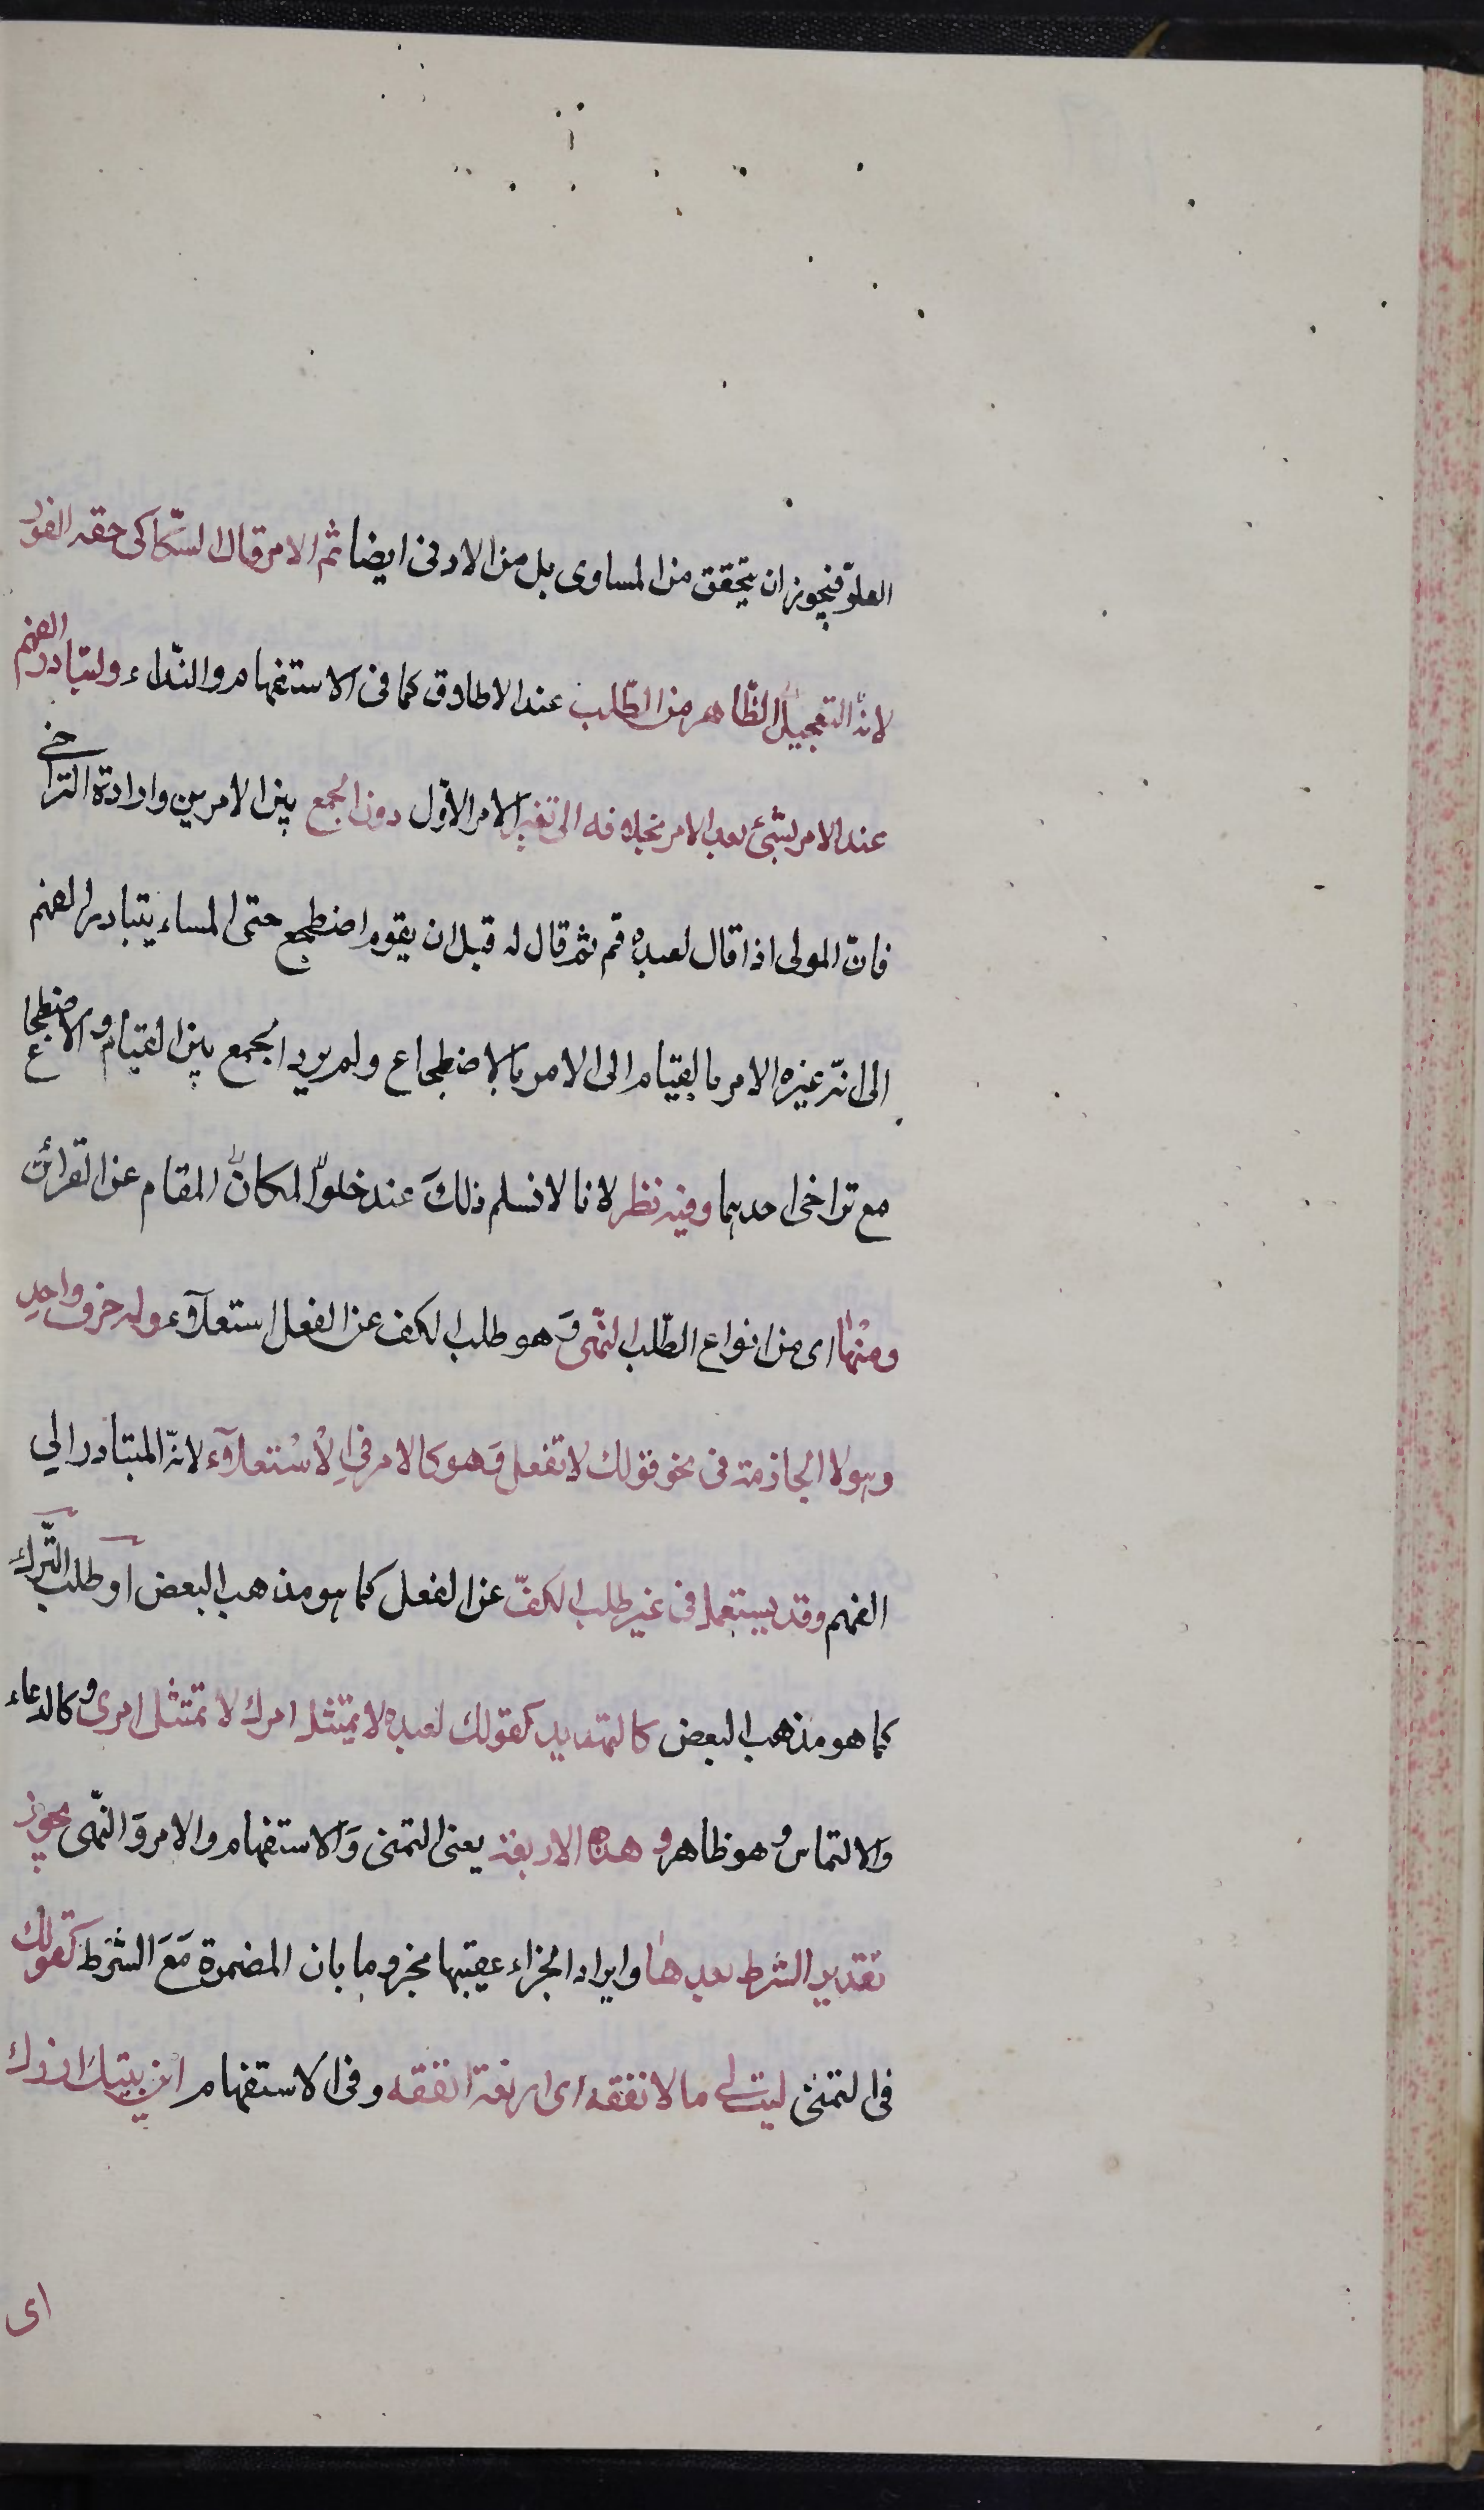 العلوّ فيجوز ان يتحقق من المساوى بل من الادنى ايضا ثم الامر قال السّكاكى حقه الفور
لانّه التعجيل الظّاهر من الطّلب عند الاطلاق كما فى الاستفهام والنّداء ولتبادر الفهم
عند الامر بشئ بعد الامر بخلافه الى تغيير الامر الاوّل دون الجمع بين الامرين وارادة التراخى
فانّ المولى اذا قال لعبده قم ثم قال له قبل ان يقوم اضطجع حتى المساء يتبادر الفهم
الى انّه غيره الامر بالقيام الى الامر بالاضطجاع ولم يرد الجمع بين القيام والاضطجاع
مع تراخى احدهما وفيه نظر لانا لا نسلم ذلكَ عند خلوّ المكان المقام عن القرائن
ومنها اى من انواع الطّلب النّهى وَهو طلب الكف عن الفعل استعلآء وله حرف واحدِ
وهو لا الجازمة فى نحو قولك لا تفعل وَهو كالامر فى الْاسْتعلآء لانّه المتبادر الي
الفهم وقد يستعمل فى غير طلب الكفّ عن الفعل كما هو مذهب البعض او طلب التّرك
كما هو مذهب البعض كالتهديد كقولك لعبده لا يمتثل امرك لا تمتثل امرى وكالدعاء
والالتماس وهو ظاهر وهذه الاربعة يعنى التمنى وَالاستفهام والامر وَالنّهى يجوز
تقدير الشرط بعدها وايراد الجزاء عقيبها مجزوما بان المضمرة مَعَ الشّرط كقولك
فى التمنى ليت لى مالا انفقه اى ان ارزقه انفقه وفى الاستفهام اين بيتك ازرك
اى